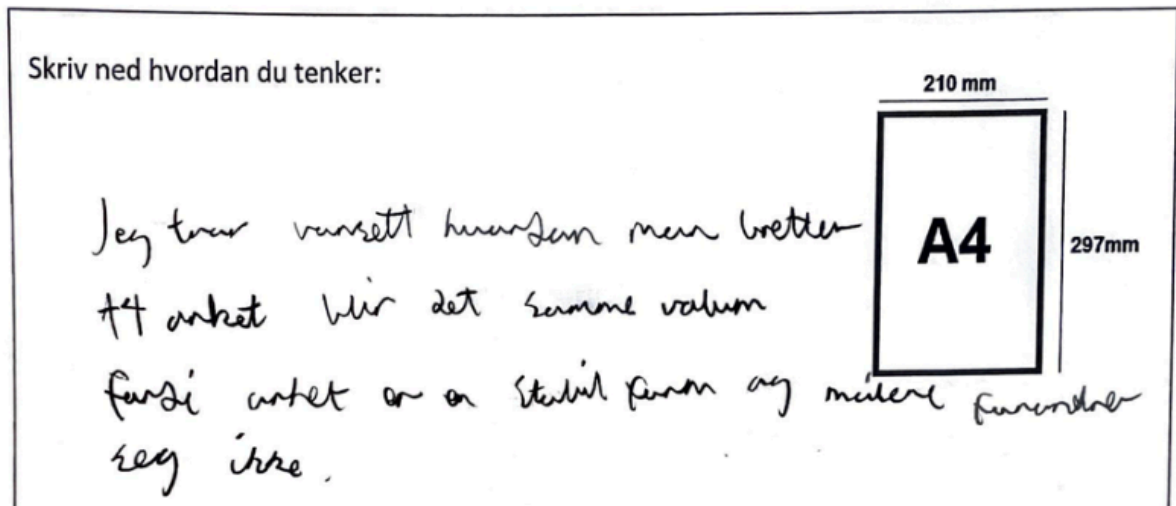 Skriv ned hvordan du tenker:
210 mm
Jeg tror uansett hvordan man bretter
A4
297mm
A4 arket blir det samme volum
fordi arket er en stabil form og målene forandrer
seg ikke.